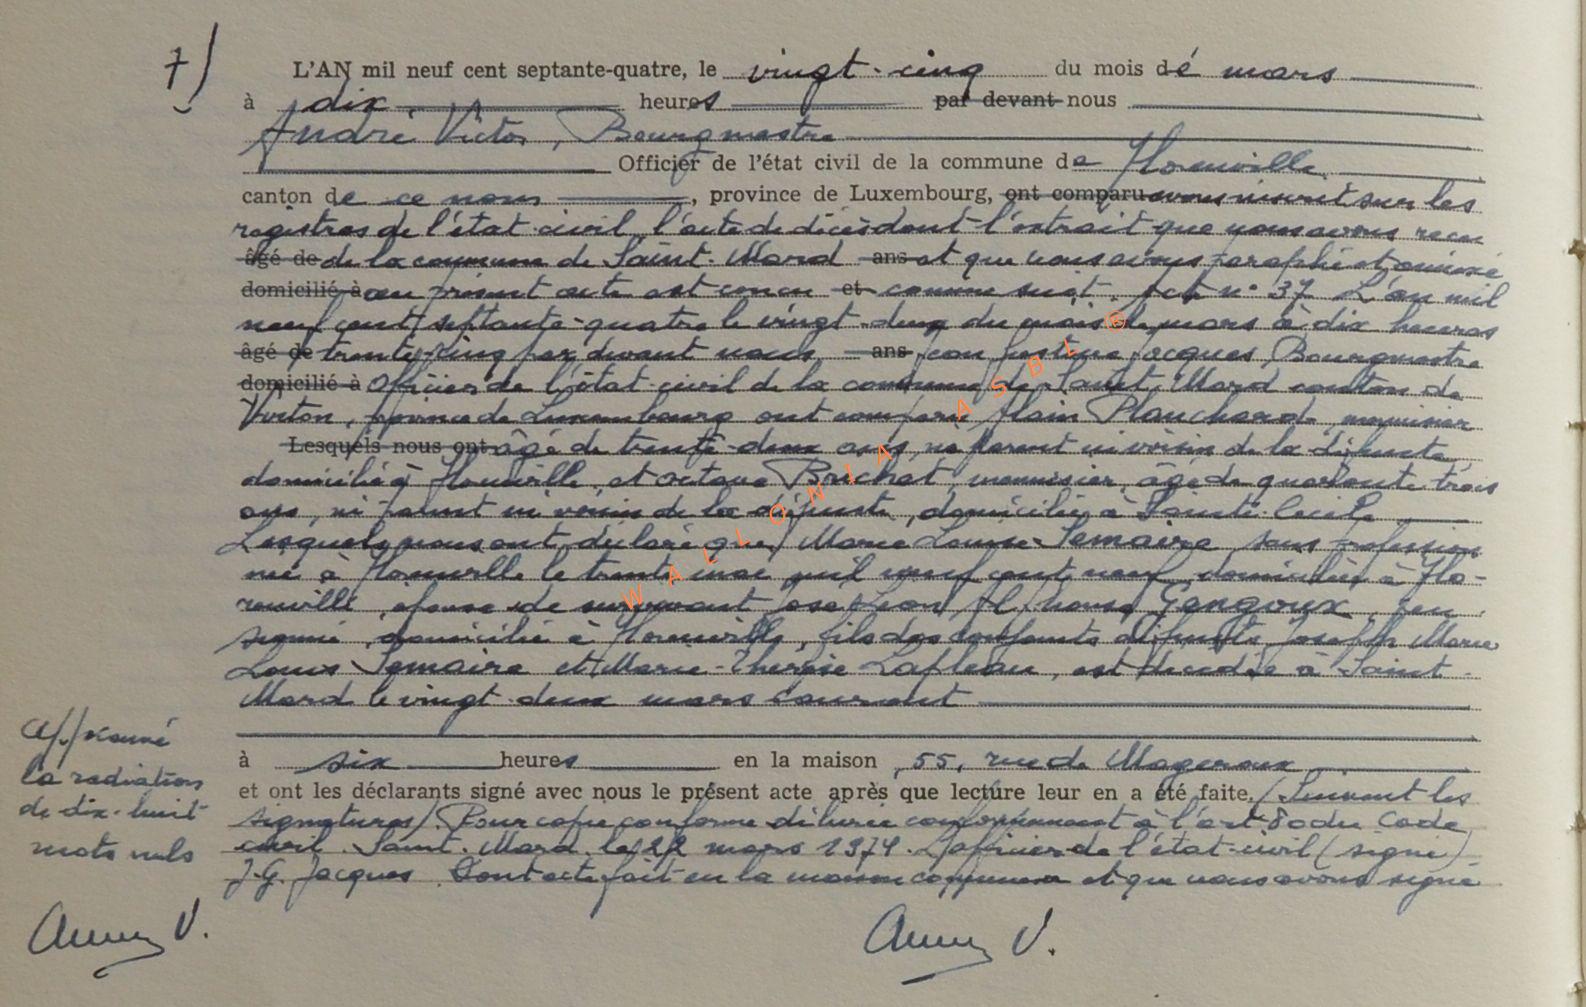 7)
L'AN mil neuf cent septante-quatre, le vingt-cinq du mois de mars
à dix heures par devant nous
André Victor, Bourgmestre
Officier de l'état civil de la commune de Florenville
canton de ce nom, province de Luxembourg, ont comparu avons inscrit sur les
registres de l'état civil, l'acte de décès dont l'extrait que nous avons reçu
âgé de de la commune de Saint-Mard ans et que nous avons paraphé et annexé
domicilié à au présent acte est conçu et comme suit. Acte n° 37 L'an mil
neuf cent septante-quatre le vingt-deux du mois de mars à dix heures
âgé de trente-cinq par devant nous ans Jacques, Bourgmestre
domicilié à Officier de l'état civil de la commune de Saint-Mard canton de
Virton, province de Luxembourg ont comparu Alain Planchard menuisier
Lesquels nous ont âgé de trente-deux ans, ni parent ni voisin de la défunte,
domicilié à Florenville, et Octave Brichet, menuisier, âgé de quarante-trois
ans, ni parent ni voisin de la défunte, domicilié à Sainte-Cécile
Lesquels nous ont déclaré que Marie Louise Lemaire, sans profession
née à Florenville le trente mai mil neuf cent neuf, domiciliée à Flo-
renville, épouse de survivant José Léon Alphonse Gengoux, pen
sionné, domicilié à Florenville, fille des conjoints défunts Joseph Marie
Louis Lemaire et Marie-Thérèse Lafleau, est décédée à Saint-
Mard le vingt-deux mars courant
à six heures en la maison, 55, rue de Mageroux
et ont les déclarants signé avec nous le présent acte après que lecture leur en a été faite. (Suivent les
signatures). Pour copie conforme délivrée conformément à l'art. 80 du Code
civil. Saint-Mard, le 22 mars 1974. L'officier de l'état-civil (signé)
J.G. Jacques. Dont acte fait en la maison communale et que nous avons signé
Approuvé
la radiation
de dix-huit
mots nuls
V.
V.
WALLONIA ASBL®